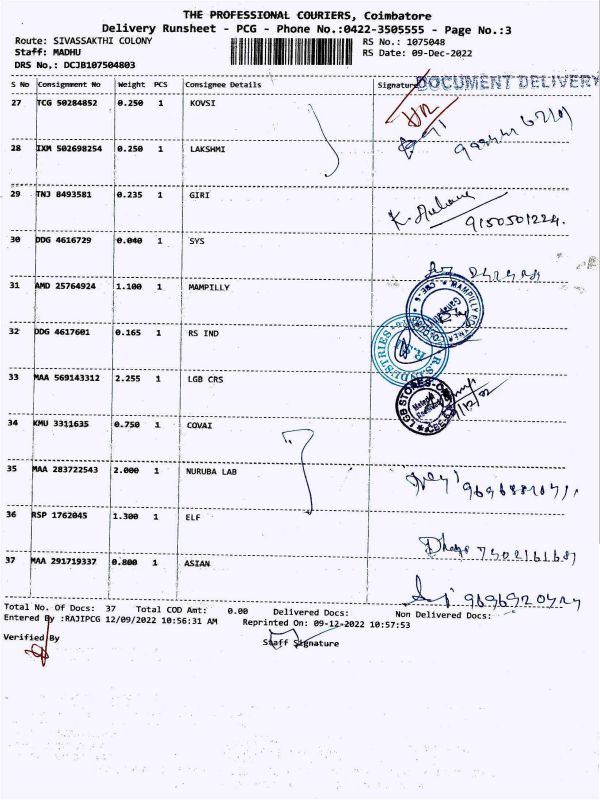 THE PROFESSIONAL COURIERS, Coimbatore
Delivery Runsheet - PCG - Phone No.:0422-3505555 - Page No.:3
Route: SIVASSAKTHI COLONY RS No.: 1075048
Staff: MADHU RS Date: 09-Dec-2022
DRS No.: DCJB107504803
S No Consignment No Weight PCS Consignee Details Signature DOCUMENT DELIVERY
27 TCG 50284852 0.250 1 KOVSI
28 IXM 502698254 0.250 1 LAKSHMI
29 TNJ 8493581 0.235 1 GIRI 9150501224.
30 DDG 4616729 0.040 1 SYS
31 AMD 25764924 1.100 1 MAMPILLY
32 DDG 4617601 0.165 1 RS IND R.S.INDUSTRIES
33 MAA 569143312 2.255 1 LGB CRS LGB STORES
34 KMU 3311635 0.750 1 COVAI
35 MAA 283722543 2.000 1 NURUBA LAB
36 RSP 1762045 1.300 1 ELF
37 MAA 291719337 0.800 1 ASIAN
Total No. Of Docs: 37 Total COD Amt: 0.00 Delivered Docs: Non Delivered Docs:
Entered By :RAJIPCG 12/09/2022 10:56:31 AM Reprinted On: 09-12-2022 10:57:53
Verified By Staff Signature